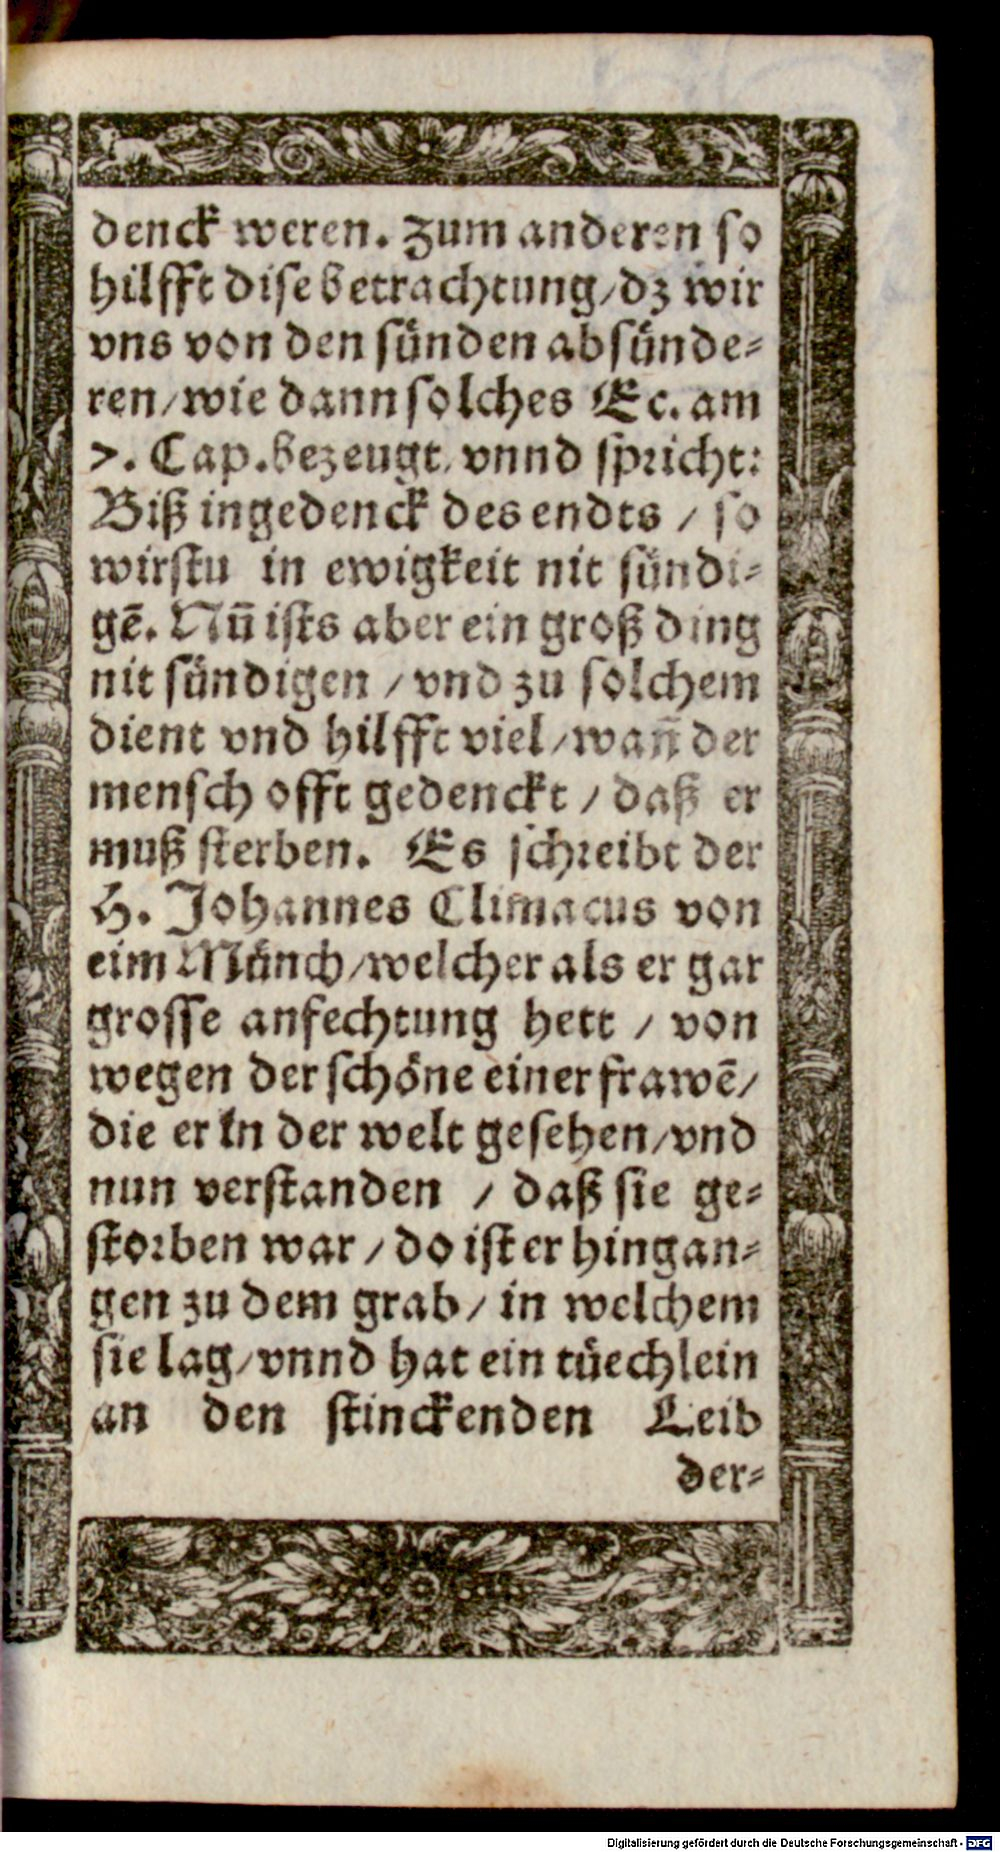 denck weren. Zum anderen so
hilfft dise betrachtung/ dz wir
vns von den sünden absünde-
ren/ wie dann solches Ec. am
7. Cap. bezeugt, vnnd spricht:
Biß ingedenck des endts / so
wirstu in ewigkeit nit sündi-
gē. Nun̄ ists aber ein groß ding
nit sündigen / vnd zu solchem
dient vnd hilfft viel/ wan̄ der
mensch offt gedenckt / daß er
muß sterben. Es schreibt der
H. Johannes Climacus von
eim Münch/ welcher als er gar
grosse anfechtung hett / von
wegen der schöne einer frawē/
die er in der welt gesehen/ vnd
nun verstanden / daß sie ge-
storben war / do ist er hingan-
gen zu dem grab/ in welchem
sie lag/ vnnd hat ein tüechlein
an den stinckenden Leib
der-
Digitalisierung gefördert durch die Deutsche Forschungsgemeinschaft - DFG